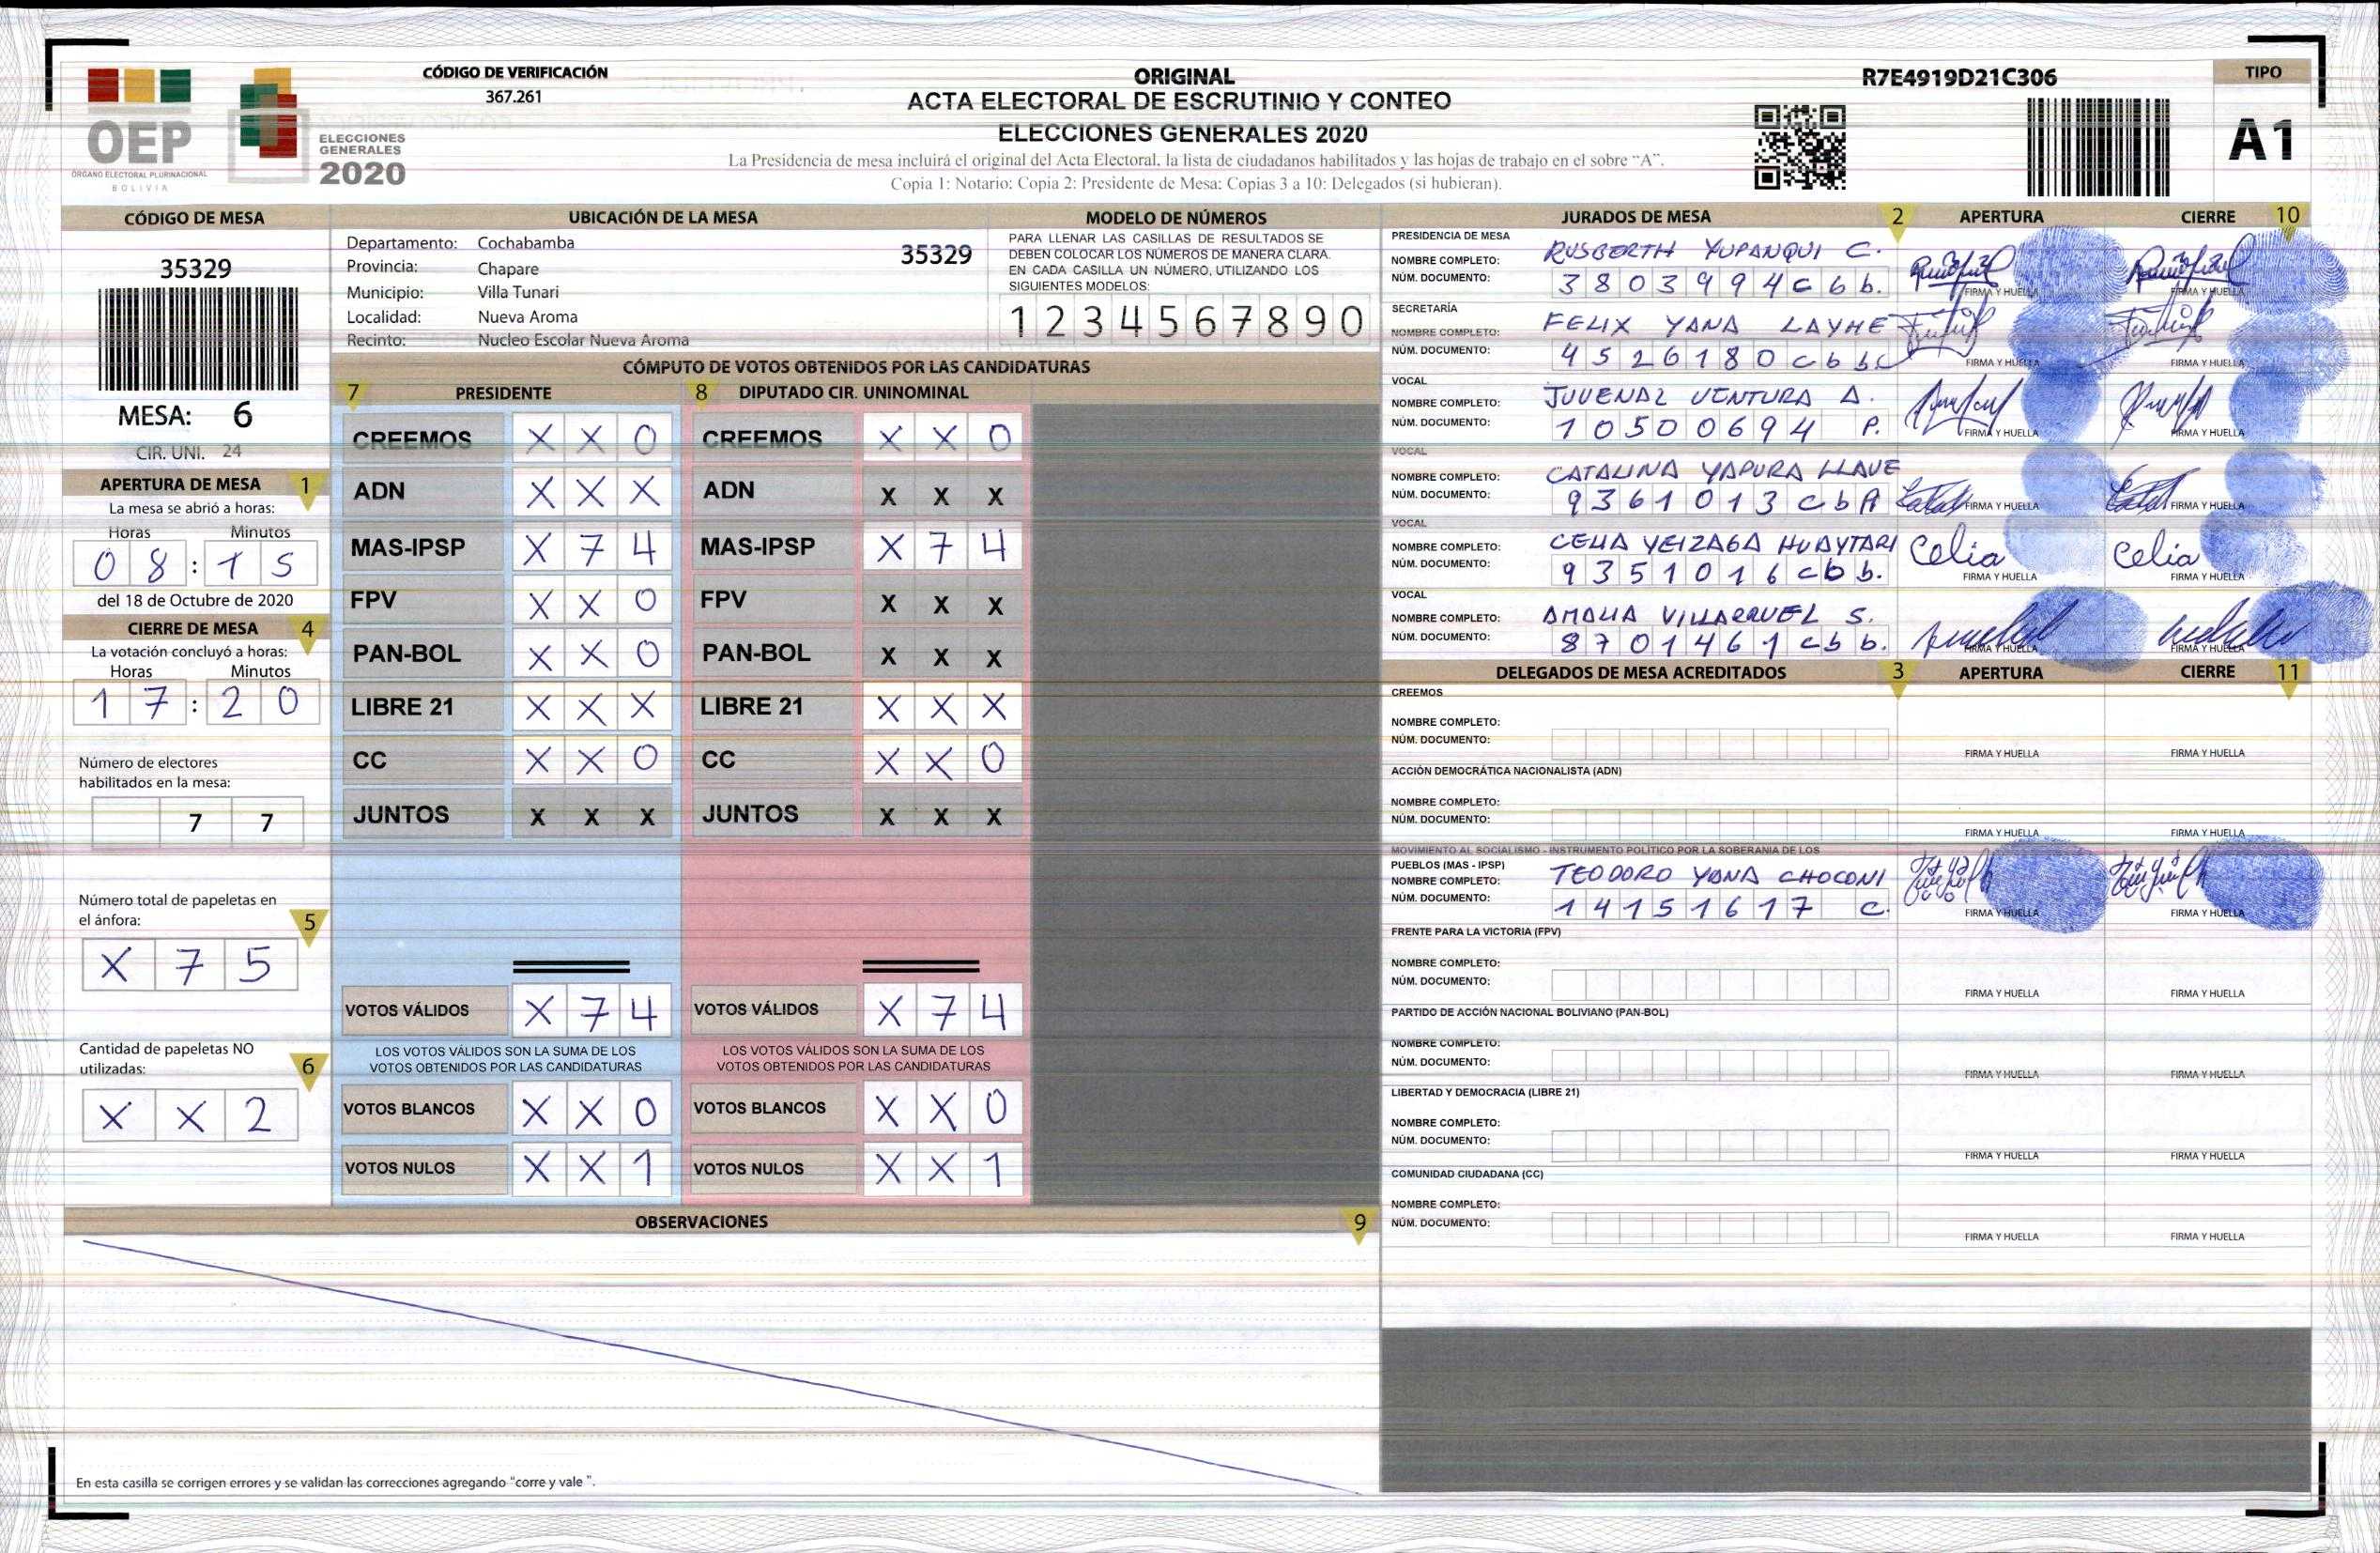 OEP
ÓRGANO ELECTORAL PLURINACIONAL
BOLIVIA
ELECCIONES
GENERALES
2020
CÓDIGO DE VERIFICACIÓN
367.261
ORIGINAL
ACTA ELECTORAL DE ESCRUTINIO Y CONTEO
ELECCIONES GENERALES 2020
La Presidencia de mesa incluirá el original del Acta Electoral, la lista de ciudadanos habilitados y las hojas de trabajo en el sobre "A".
Copia 1: Notario: Copia 2: Presidente de Mesa: Copias 3 a 10: Delegados (si hubieran).
R7E4919D21C306
TIPO
A1
CÓDIGO DE MESA
35329
MESA: 6
CIR. UNI. 24
APERTURA DE MESA 1
La mesa se abrió a horas:
Horas Minutos
0 8 : 1 5
del 18 de Octubre de 2020
CIERRE DE MESA 4
La votación concluyó a horas:
Horas Minutos
1 7 : 2 0
Número de electores
habilitados en la mesa:
7 7
Número total de papeletas en
el ánfora: 5
X 7 5
Cantidad de papeletas NO
utilizadas: 6
X X 2
UBICACIÓN DE LA MESA
Departamento: Cochabamba 35329
Provincia: Chapare
Municipio: Villa Tunari
Localidad: Nueva Aroma
Recinto: Nucleo Escolar Nueva Aroma
MODELO DE NÚMEROS
PARA LLENAR LAS CASILLAS DE RESULTADOS SE
DEBEN COLOCAR LOS NÚMEROS DE MANERA CLARA.
EN CADA CASILLA UN NÚMERO, UTILIZANDO LOS
SIGUIENTES MODELOS:
1 2 3 4 5 6 7 8 9 0
CÓMPUTO DE VOTOS OBTENIDOS POR LAS CANDIDATURAS
7 PRESIDENTE 8 DIPUTADO CIR. UNINOMINAL
CREEMOS X X 0 CREEMOS X X 0
ADN X X X ADN X X X
MAS-IPSP X 7 4 MAS-IPSP X 7 4
FPV X X 0 FPV X X X
PAN-BOL X X 0 PAN-BOL X X X
LIBRE 21 X X X LIBRE 21 X X X
CC X X 0 CC X X 0
JUNTOS X X X JUNTOS X X X
VOTOS VÁLIDOS X 7 4 VOTOS VÁLIDOS X 7 4
LOS VOTOS VÁLIDOS SON LA SUMA DE LOS LOS VOTOS VÁLIDOS SON LA SUMA DE LOS
VOTOS OBTENIDOS POR LAS CANDIDATURAS VOTOS OBTENIDOS POR LAS CANDIDATURAS
VOTOS BLANCOS X X 0 VOTOS BLANCOS X X 0
VOTOS NULOS X X 1 VOTOS NULOS X X 1
OBSERVACIONES 9
En esta casilla se corrigen errores y se validan las correcciones agregando "corre y vale ".
JURADOS DE MESA 2 APERTURA CIERRE 10
PRESIDENCIA DE MESA
NOMBRE COMPLETO: RUSBERTH YUPANQUI C.
NÚM. DOCUMENTO: 3803994cbb.
FIRMA Y HUELLA FIRMA Y HUELLA
SECRETARÍA
NOMBRE COMPLETO: FELIX YANA LAYME
NÚM. DOCUMENTO: 4526180cbb.
FIRMA Y HUELLA FIRMA Y HUELLA
VOCAL
NOMBRE COMPLETO: JUVENAL VENTURA A.
NÚM. DOCUMENTO: 10500694 P.
FIRMA Y HUELLA FIRMA Y HUELLA
VOCAL
NOMBRE COMPLETO: CATALINA YAPURA LLAVE
NÚM. DOCUMENTO: 9361013cbA
FIRMA Y HUELLA FIRMA Y HUELLA
VOCAL
NOMBRE COMPLETO: CELIA YEIZAGA HUAYTARI Celia Celia
NÚM. DOCUMENTO: 9351016cbb.
FIRMA Y HUELLA FIRMA Y HUELLA
VOCAL
NOMBRE COMPLETO: AMALIA VILLARRUEL S.
NÚM. DOCUMENTO: 8701461cbb.
FIRMA Y HUELLA FIRMA Y HUELLA
DELEGADOS DE MESA ACREDITADOS 3 APERTURA CIERRE 11
CREEMOS
NOMBRE COMPLETO:
NÚM. DOCUMENTO:
FIRMA Y HUELLA FIRMA Y HUELLA
ACCIÓN DEMOCRÁTICA NACIONALISTA (ADN)
NOMBRE COMPLETO:
NÚM. DOCUMENTO:
FIRMA Y HUELLA FIRMA Y HUELLA
MOVIMIENTO AL SOCIALISMO - INSTRUMENTO POLÍTICO POR LA SOBERANIA DE LOS
PUEBLOS (MAS - IPSP)
NOMBRE COMPLETO: TEODORO YANA CHOCONI
NÚM. DOCUMENTO: 14151617 C.
FIRMA Y HUELLA FIRMA Y HUELLA
FRENTE PARA LA VICTORIA (FPV)
NOMBRE COMPLETO:
NÚM. DOCUMENTO:
FIRMA Y HUELLA FIRMA Y HUELLA
PARTIDO DE ACCIÓN NACIONAL BOLIVIANO (PAN-BOL)
NOMBRE COMPLETO:
NÚM. DOCUMENTO:
FIRMA Y HUELLA FIRMA Y HUELLA
LIBERTAD Y DEMOCRACIA (LIBRE 21)
NOMBRE COMPLETO:
NÚM. DOCUMENTO:
FIRMA Y HUELLA FIRMA Y HUELLA
COMUNIDAD CIUDADANA (CC)
NOMBRE COMPLETO:
NÚM. DOCUMENTO:
FIRMA Y HUELLA FIRMA Y HUELLA